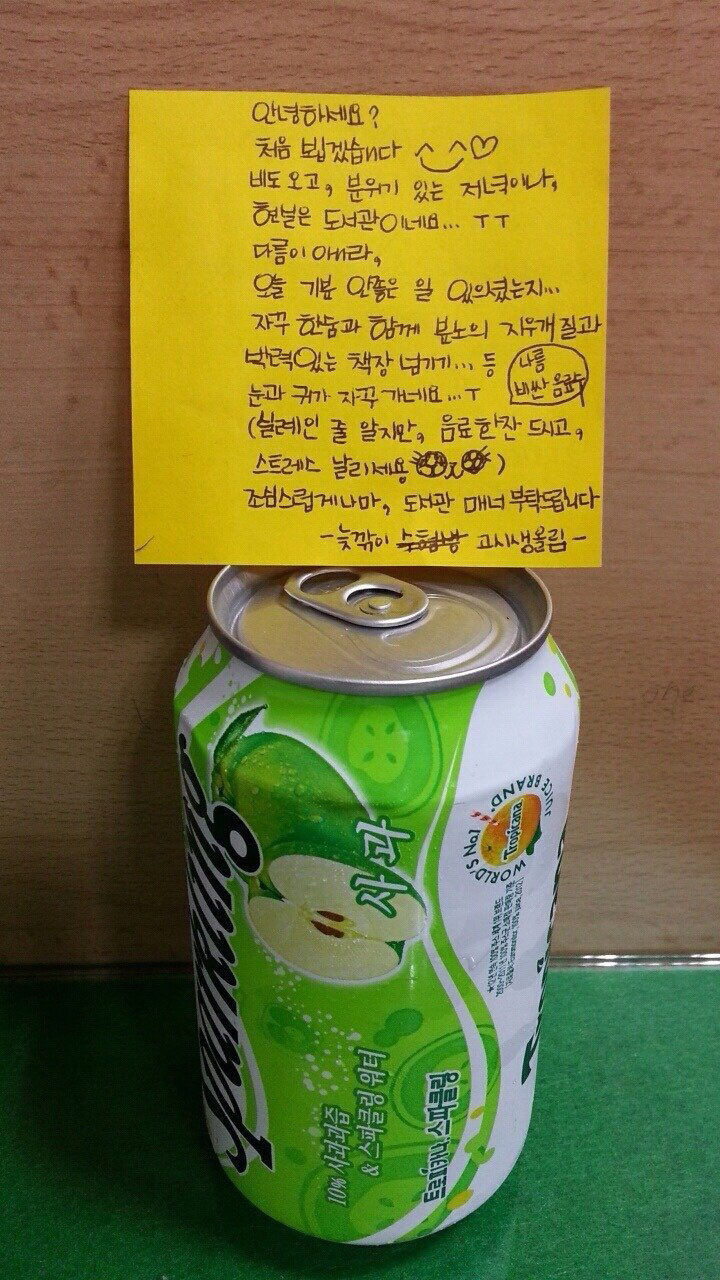 안녕하세요?
처음 뵙겠습니다 ^_^♡
비도 오고, 분위기 있는 저녁이나,
현실은 도서관이네요... ㅜㅜ
다름이 아니라,
오늘 기분 안좋은 일 있으셨는지...
자꾸 한숨과 함께 분노의 지우개질과
박력있는 책장 넘기기... 등
나름
비싼 음료수
눈과 귀가 자꾸 가네요...ㅜ
(실례인 줄 알지만, 음료한잔 드시고,
스트레스 날리세용 )
조심스럽게나마, 도서관 매너 부탁드립니다
-늦깎이 수험생 고시생올림-
Sparkling
사과
10% 사과과즙
& 스파클링 워터
트로피카나 스파클링
WORLD'S No.1 JUICE BRAND.
Tropicana